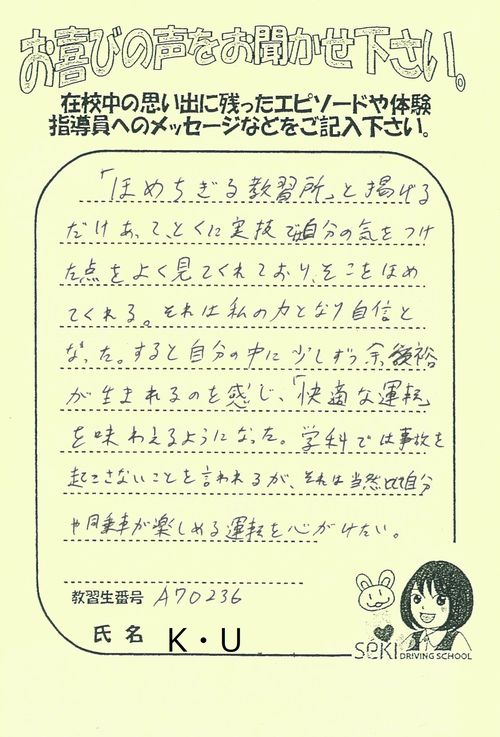 お喜びの声をお聞かせ下さい。
在校中の思い出に残ったエピソードや体験
指導員へのメッセージなどをご記入下さい。
「ほめちぎる教習所」と掲げる
だけあって、とくに実技では自分の気をつけ
た点をよく見てくれており、そこをほめ
てくれる。それは私の力となり自信と
なった。すると自分の中に少しずつ余裕
が生まれるのを感じ、「快適な運転」
を味わえるようになった。学科では事故を
起こさないことを言われるが、それは当然として自分
や同乗車が楽しめる運転を心がけたい。
教習生番号 A70236
氏名 K・U
SEKI DRIVING SCHOOL